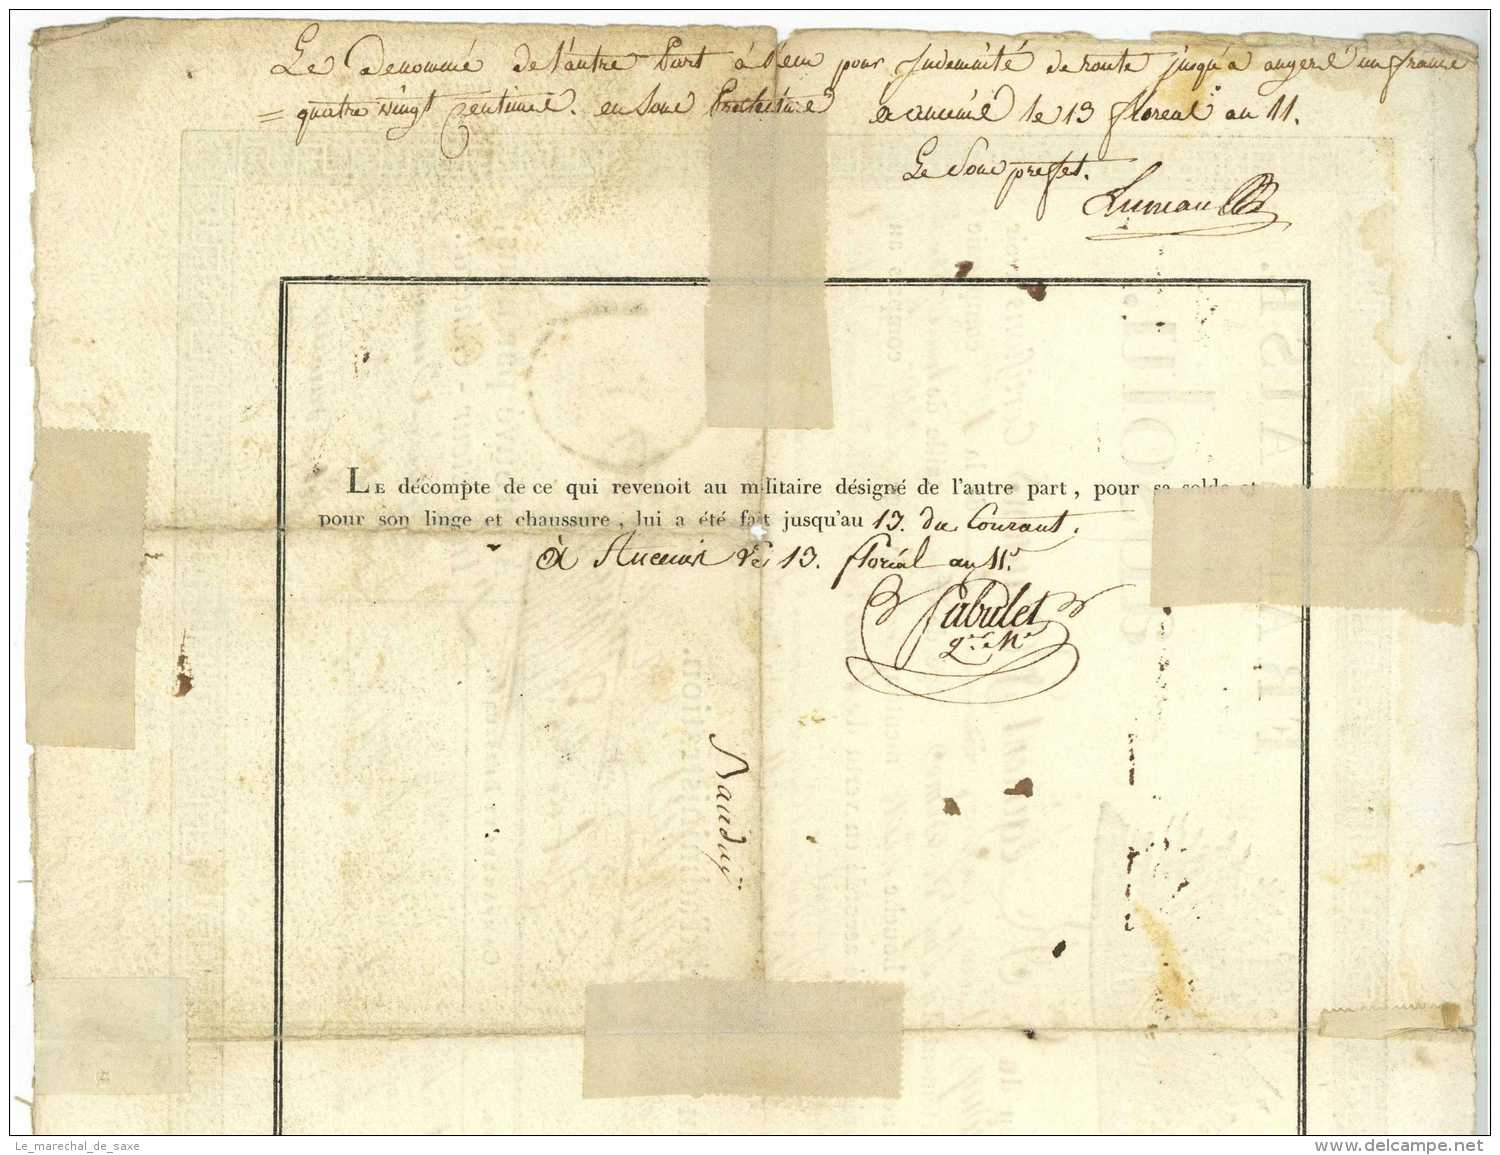 Le denommé de l'autre part à Reçu pour Indemnité de route jusqu'a angers un franc
= quatre vingt Centimes. en Sous Prefecture a ancenis le 13 floreal an 11.
Le Sous prefet.
Luneau
LE décompte de ce qui revenoit au militaire désigné de l'autre part, pour sa solde et
pour son linge et chaussure, lui a été fait jusqu'au 13. du Courant.
à Ancenis le 13. floréal an 11.
Sabulet
qer. Me
Nauduy
Le_marechal_de_saxe
www.delcampe.net